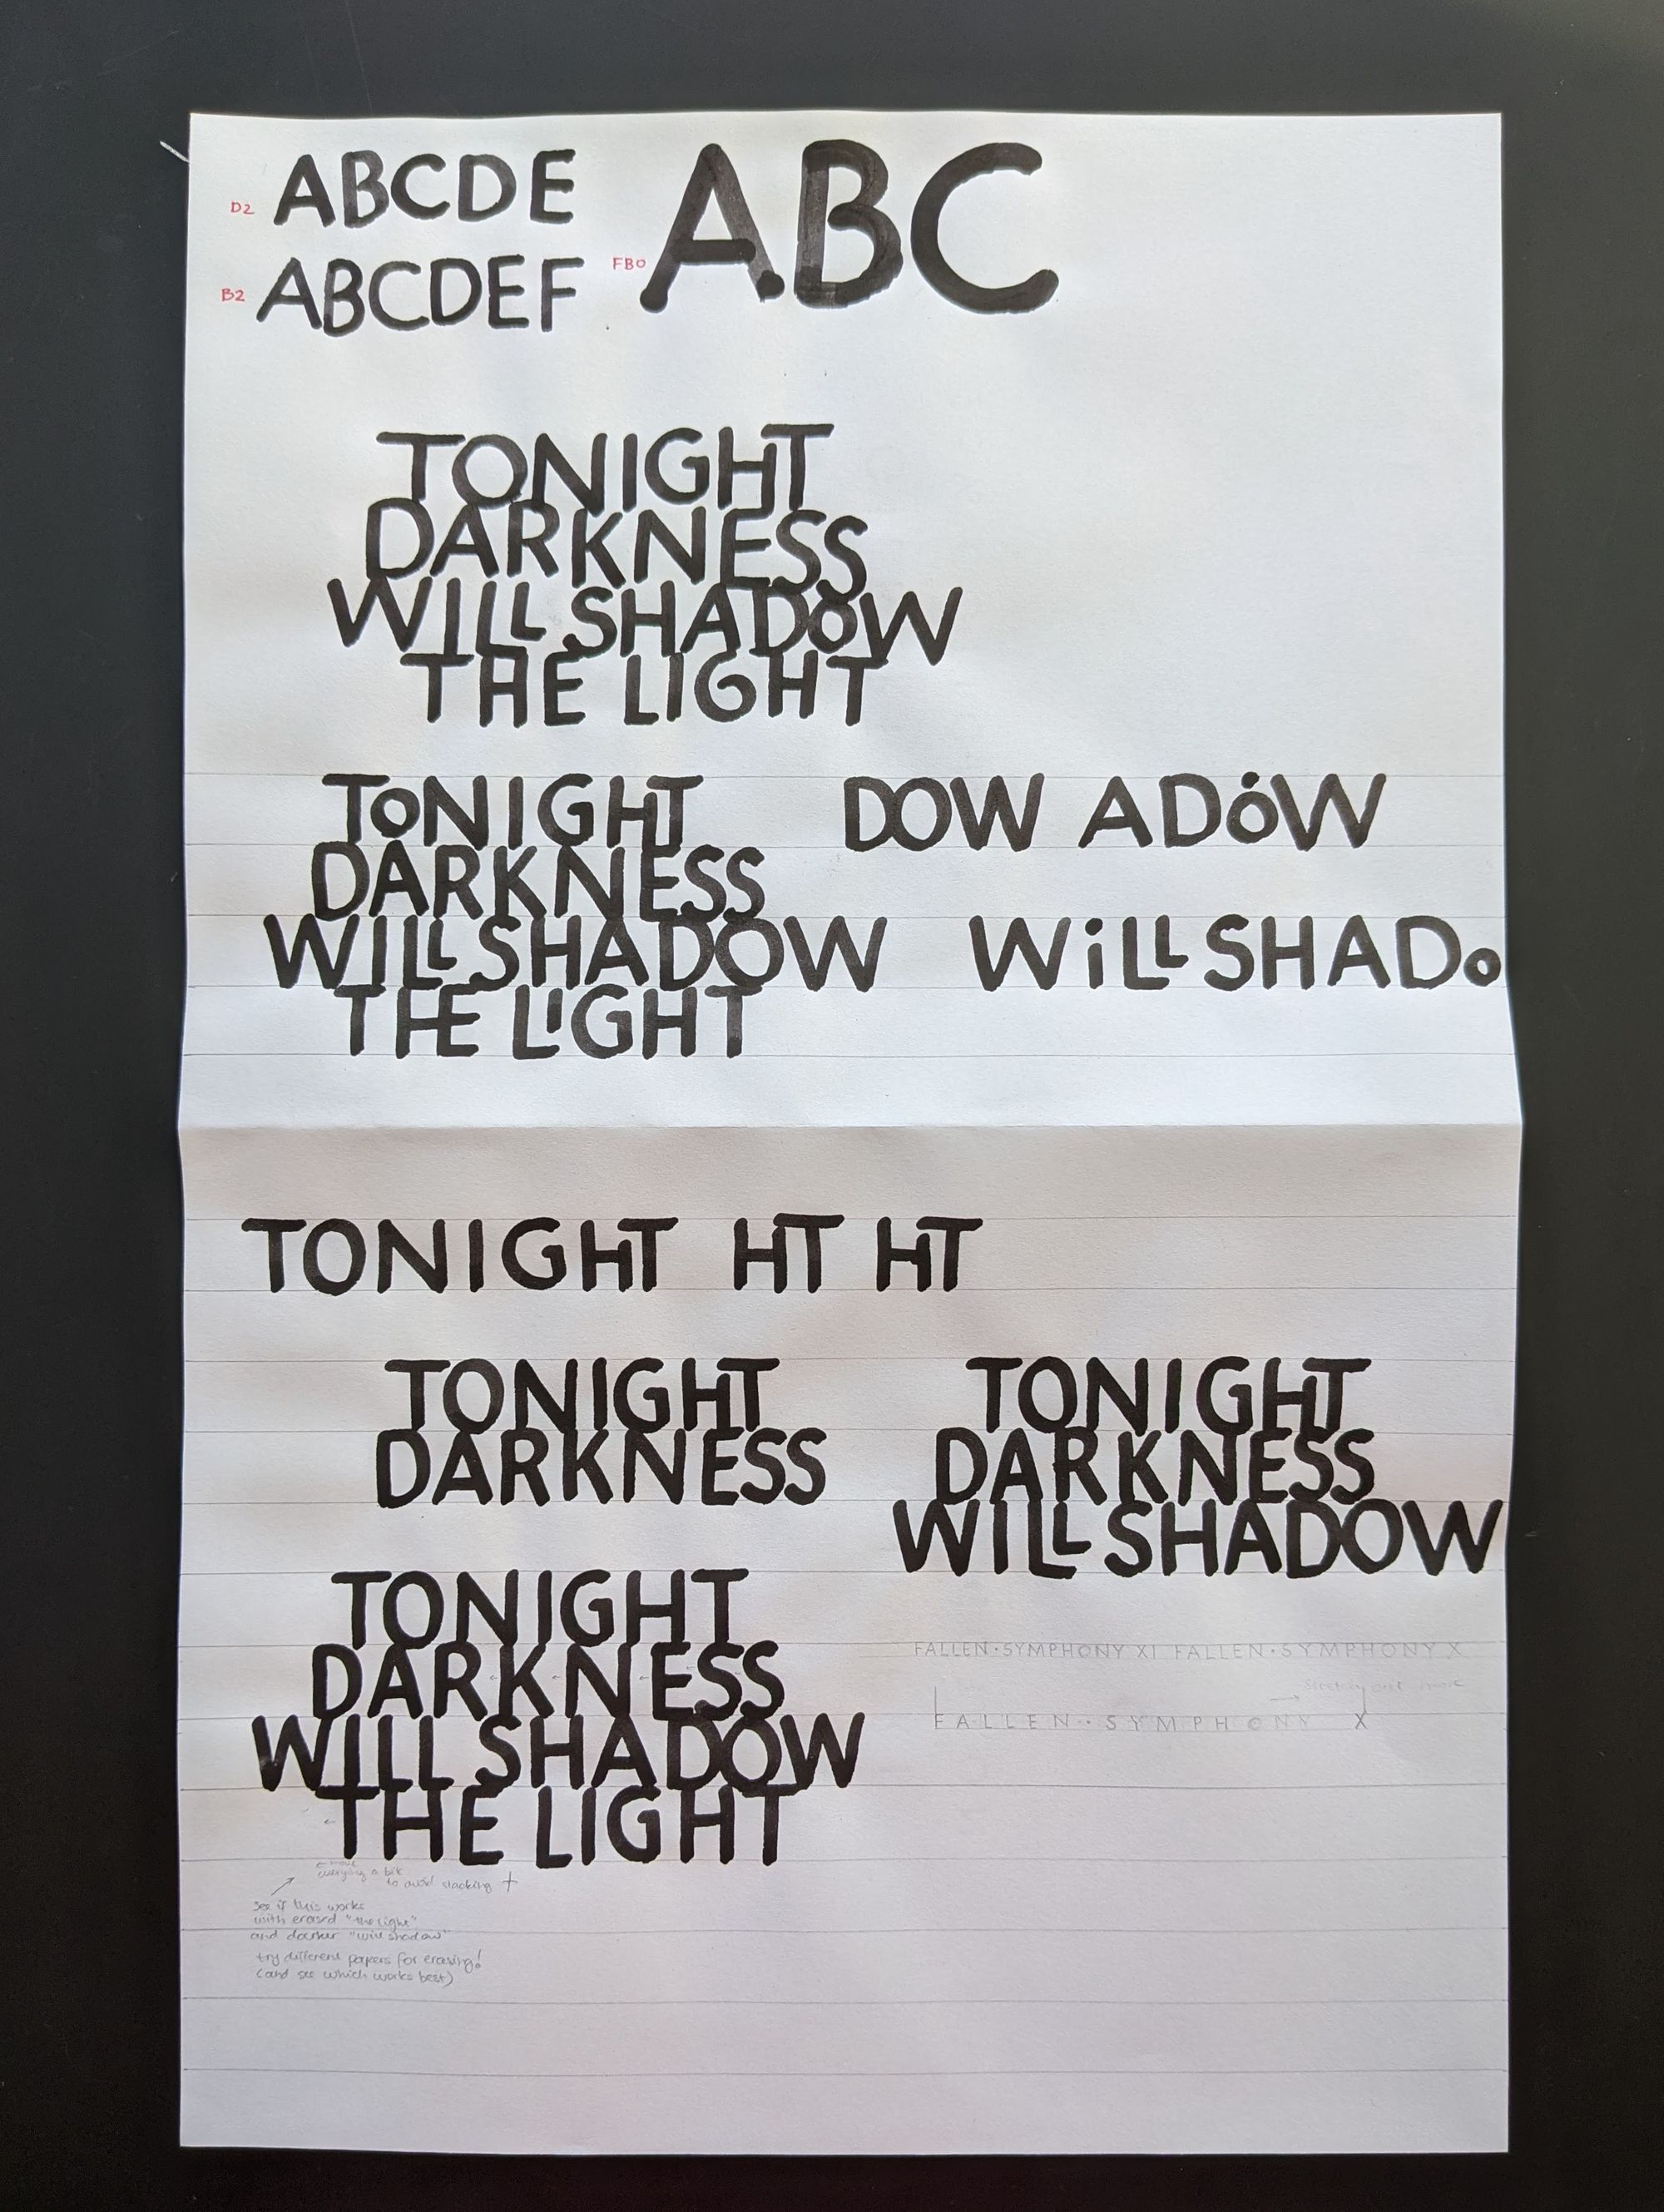 D2 ABCDE
B2 ABCDEF
FB0 ABC
TONIGHT
DARKNESS
WILL SHADOW
THE LIGHT
TONIGHT
DARKNESS
WILL SHADOW
THE LIGHT
DOW ADOW
WiLL SHADO
TONIGHT HT HT
TONIGHT
DARKNESS
TONIGHT
DARKNESS
WILL SHADOW
TONIGHT
DARKNESS
WILL SHADOW
THE LIGHT
FALLEN·SYMPHONY XI FALLEN·SYMPHONY X
→
FALLEN··SYMPHONY X
← move
everything a bit
to avoid stacking
see if this works
with erased "the light"
and darker "will shadow"
try different papers for erasing!
(and see which works best)